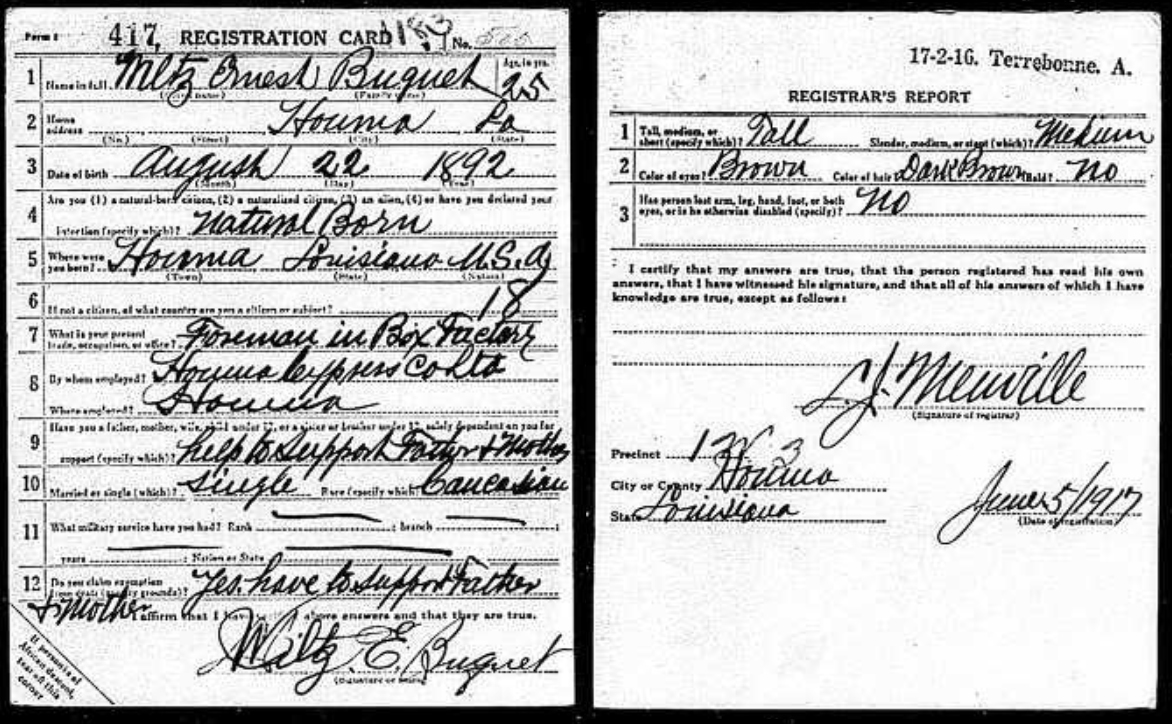 Form 1 417 REGISTRATION CARD 183 No. 500
1 Name in full Wltz Ernest Buquet Age, in yrs. 25
(Given name) (Family name)
2 Home address Houma La
(No.) (Street) (City) (State)
3 Date of birth August 22 1892
(Month) (Day) (Year)
4 Are you (1) a natural-born citizen, (2) a naturalized citizen, (3) an alien, (4) or have you declared your
intention (specify which)? Natural Born
5 Where were you born? Houma Louisiana U.S.A
(Town) (State) (Nation)
6 If not a citizen, of what country are you a citizen or subject? 18
7 What is your present trade, occupation, or office? Foreman in Box Factory
8 By whom employed? Houma Cypress Co Ltd
Where employed? Houma
9 Have you a father, mother, wife, child under 12, or a sister or brother under 12, solely dependent on you for
support (specify which)? help to support Father & Mother
10 Married or single (which)? Single Race (specify which)? Caucasian
11 What military service have you had? Rank ; branch ;
years ; Nation or State
12 Do you claim exemption from draft (specify grounds)? Yes, have to support Father
& Mother I affirm that I have verified above answers and that they are true.
Wiltz E. Buquet
(Signature or mark)
If person is of
African descent,
tear off this
corner
17-2-16. Terrebonne. A.
REGISTRAR'S REPORT
1 Tall, medium, or short (specify which)? Tall Slender, medium, or stout (which)? Medium
2 Color of eyes? Brown Color of hair Dark Brown Bald? No
3 Has person lost arm, leg, hand, foot, or both eyes, or is he otherwise disabled (specify)? No
I certify that my answers are true, that the person registered has read his own
answers, that I have witnessed his signature, and that all of his answers of which I have
knowledge are true, except as follows:
L. J. Menville
(Signature of registrar)
Precinct 1 W. 3
City or County Houma
State Louisiana
June 5/1917
(Date of registration)